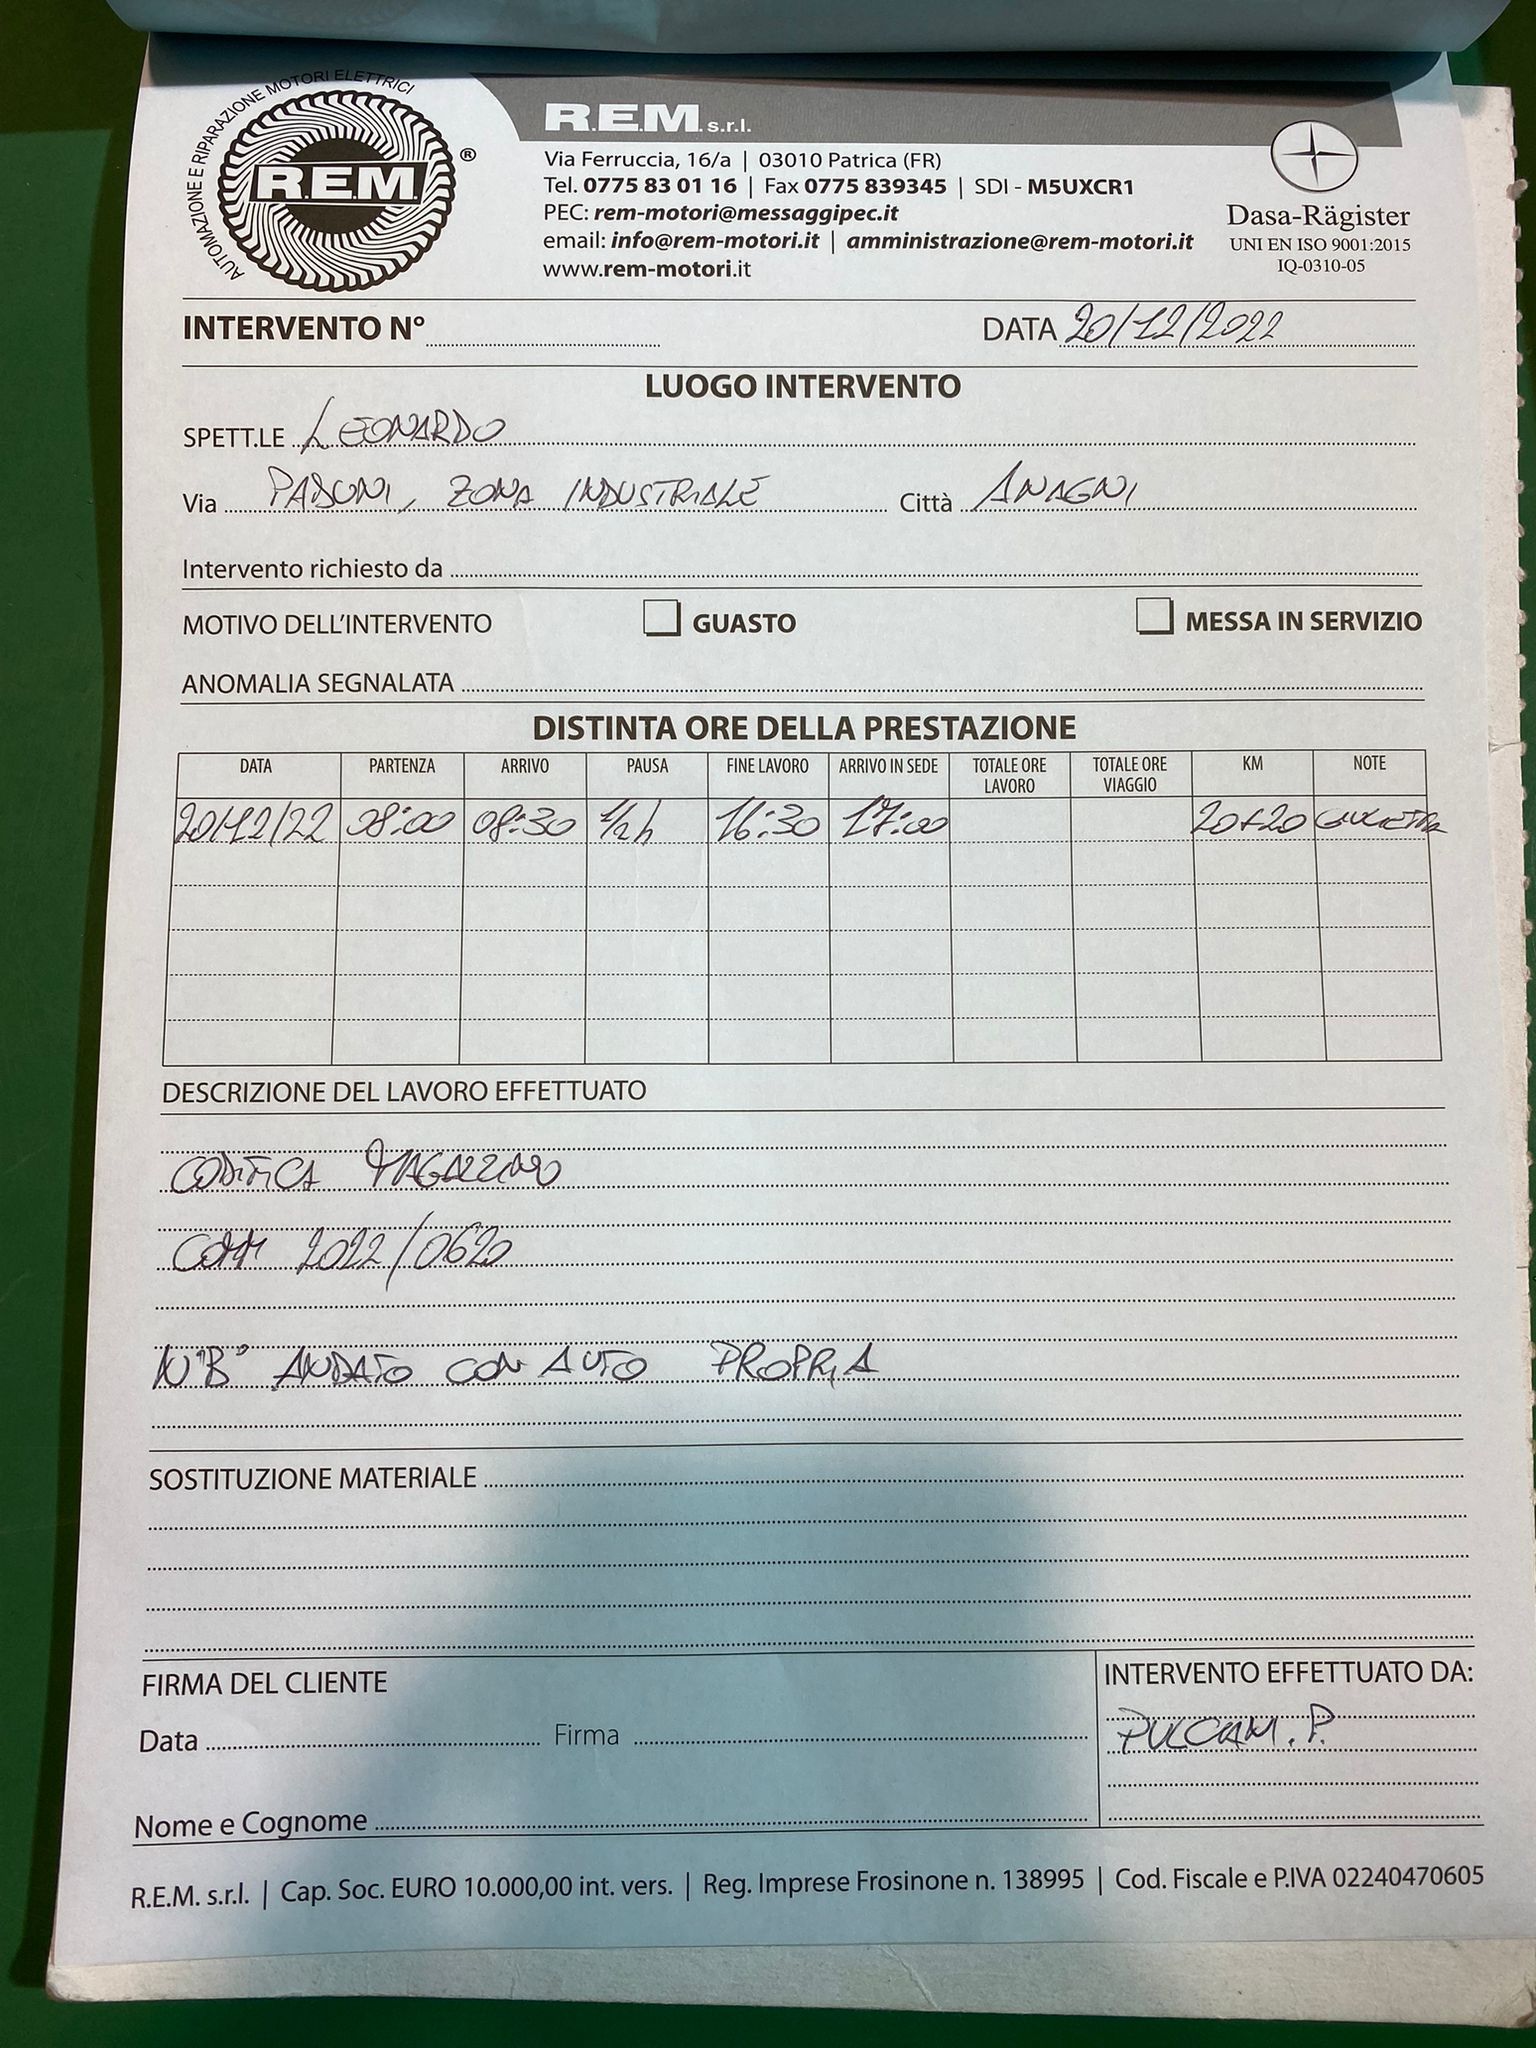 AUTOMAZIONE E RIPARAZIONE MOTORI ELETTRICI
R.E.M. ®
R.E.M. s.r.l.
Via Ferruccia, 16/a | 03010 Patrica (FR)
Tel. 0775 83 01 16 | Fax 0775 839345 | SDI - M5UXCR1
PEC: rem-motori@messaggipec.it
email: info@rem-motori.it | amministrazione@rem-motori.it
www.rem-motori.it
Dasa-Rägister
UNI EN ISO 9001:2015
IQ-0310-05
INTERVENTO N° DATA 20/12/2022
LUOGO INTERVENTO
SPETT.LE LEONARDO
Via PADUNI, ZONA INDUSTRIALE Città ANAGNI
Intervento richiesto da
MOTIVO DELL'INTERVENTO GUASTO MESSA IN SERVIZIO
ANOMALIA SEGNALATA
DISTINTA ORE DELLA PRESTAZIONE
DATA PARTENZA ARRIVO PAUSA FINE LAVORO ARRIVO IN SEDE TOTALE ORE LAVORO TOTALE ORE VIAGGIO KM NOTE
20/12/22 08:00 08:30 1/2 h 16:30 17:00 20+20 GIULIETTA
DESCRIZIONE DEL LAVORO EFFETTUATO
CODIFICA MAGAZZINO
COMM 2022/0620
N"B" ANDATO CON AUTO PROPRIA
SOSTITUZIONE MATERIALE
FIRMA DEL CLIENTE
Data Firma
Nome e Cognome
INTERVENTO EFFETTUATO DA:
P.
R.E.M. s.r.l. | Cap. Soc. EURO 10.000,00 int. vers. | Reg. Imprese Frosinone n. 138995 | Cod. Fiscale e P.IVA 02240470605